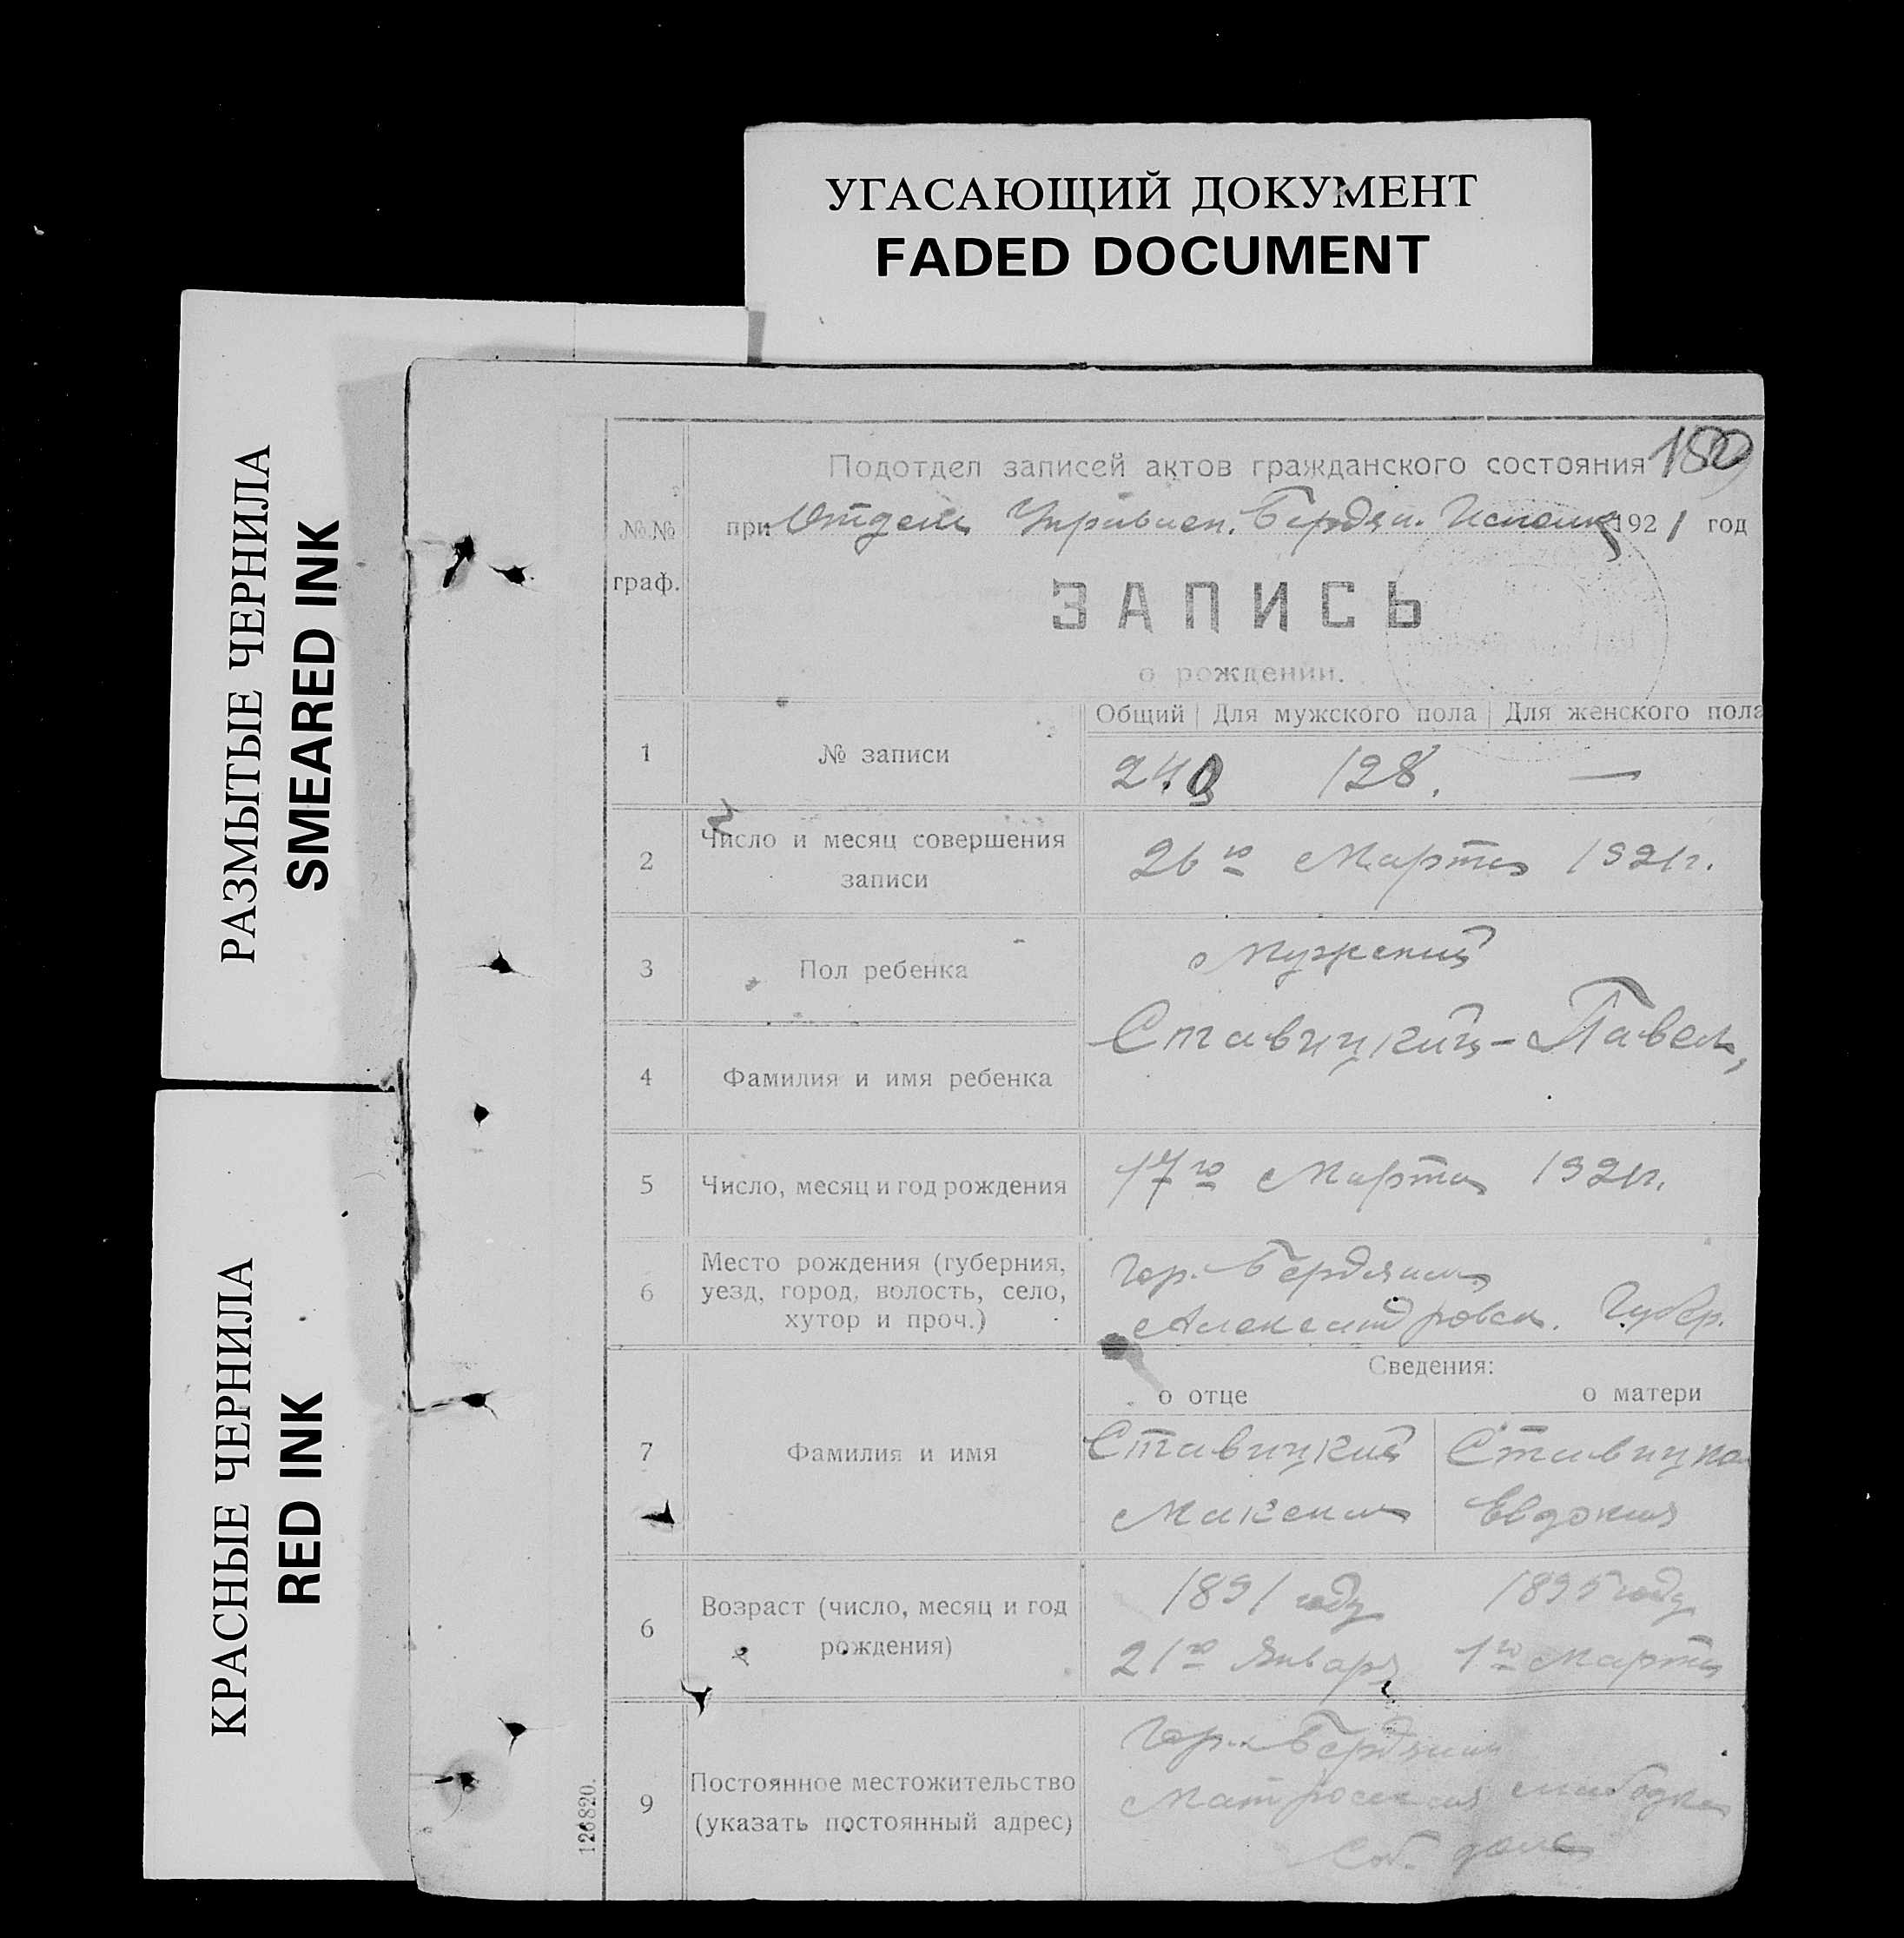 УГАСАЮЩИЙ ДОКУМЕНТ
FADED DOCUMENT
РАЗМЫТЫЕ ЧЕРНИЛА
SMEARED INK
КРАСНЫЕ ЧЕРНИЛА
RED INK
Подотдел записей актов гражданского состояния
при Отдел Управлен. Бердян. Исполк 1921 год
№№ граф.
ЗАПИСЬ
о рождении.
Общий Для мужского пола Для женского пола
1 № записи 128. —
2 Число и месяц совершения записи 26го Марта 1921г.
3 Пол ребенка Мужский
4 Фамилия и имя ребенка Ставицкий - Павел,
5 Число, месяц и год рождения 17го Марта 1921г.
6 Место рождения (губерния, уезд, город, волость, село, хутор и проч.) Гор. Бердянск
Александровск. Губер.
Сведения:
о отце о матери
7 Фамилия и имя Ставицкий Ставицка
Максим Евдокия
6 Возраст (число, месяц и год рождения) 1891 году 1895 году
21го Января 1го Марта
9 Постоянное местожительство (указать постоянный адрес) Гор. Бердянск
Матросская слободка
Соб. дом
126820.